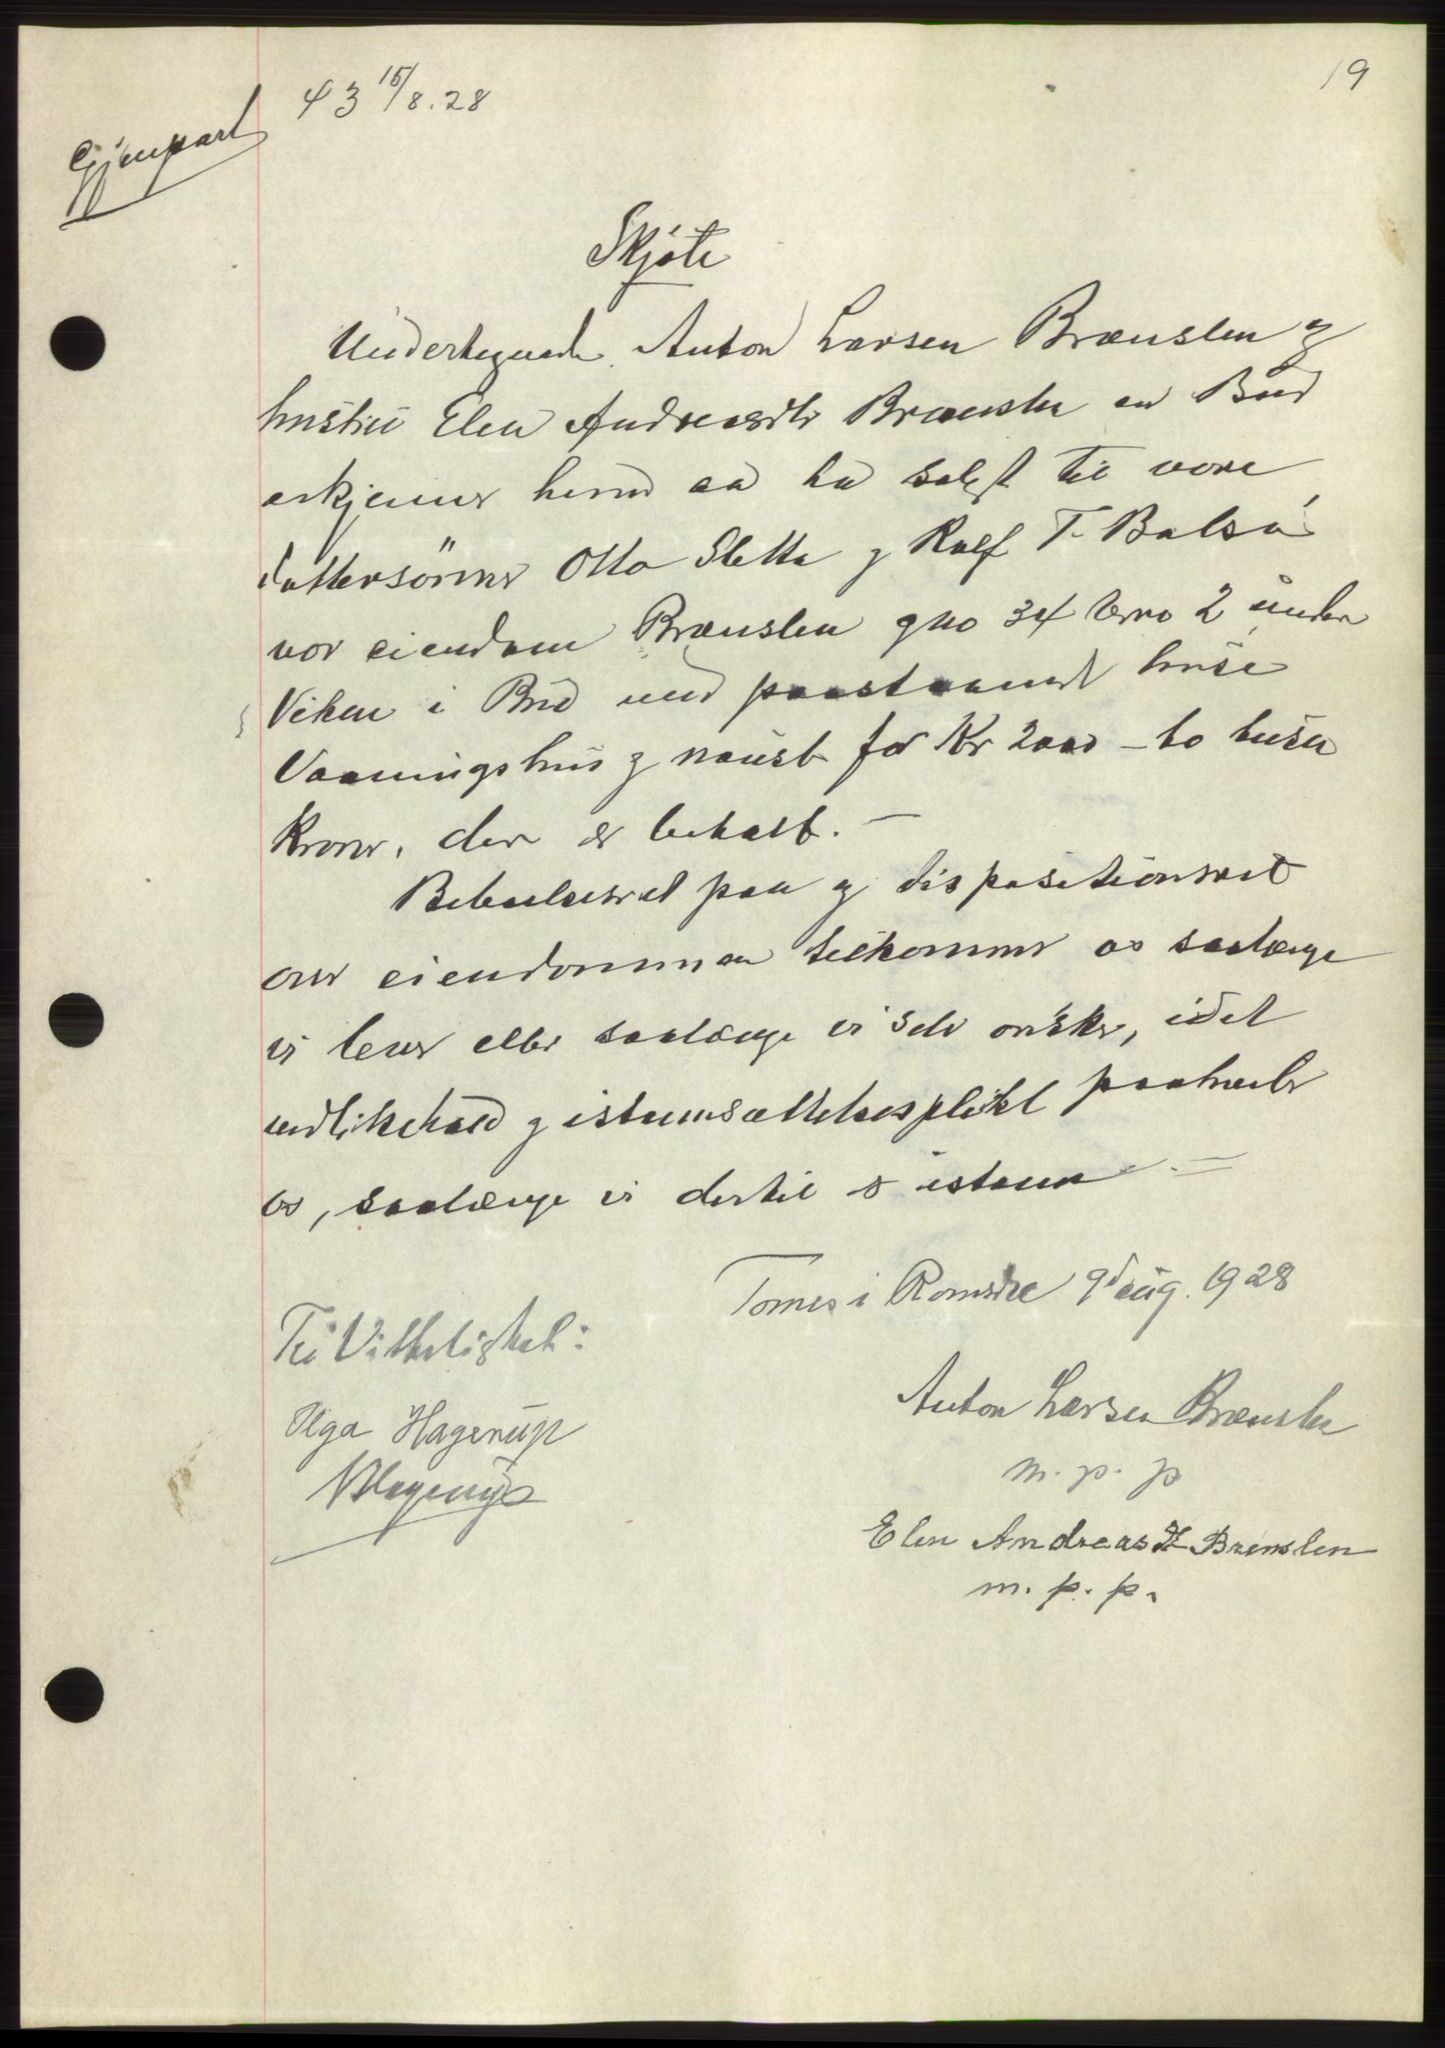 19
43 15/8.28
Gjenpart
Skjøte
Undertegnede Anton Larsen Brænslen og
hustru Elen Andreasdtr Brænslen av Bud
erkjenner herved aa ha solgt til vore
dattersönner Otto Sletta og Rolf T. Balsa
vor eiendom Brænslen gno 34 brno 2 under
Viken i Bud med paastaaende huse
Vaaningshus og naust for Kr 2000 – to tusen
Kroner, der er betalt. –
Beboelsesret paa og dispositionsret
over eiendommen tilkommer os saalænge
vi lever eller saalænge vi selv ønsker, idet
vedlikehold og istandsættelsesplikt paahviler
os, saalænge vi dertil er istand
Tornes i Romsdal 9d aug. 1928
Til Vitterlighet:
Anton Larsen Brænslen
Olga Hagerup
m. p. p
NHagerup
Elen Andreasd Brenslen
m. p. p.